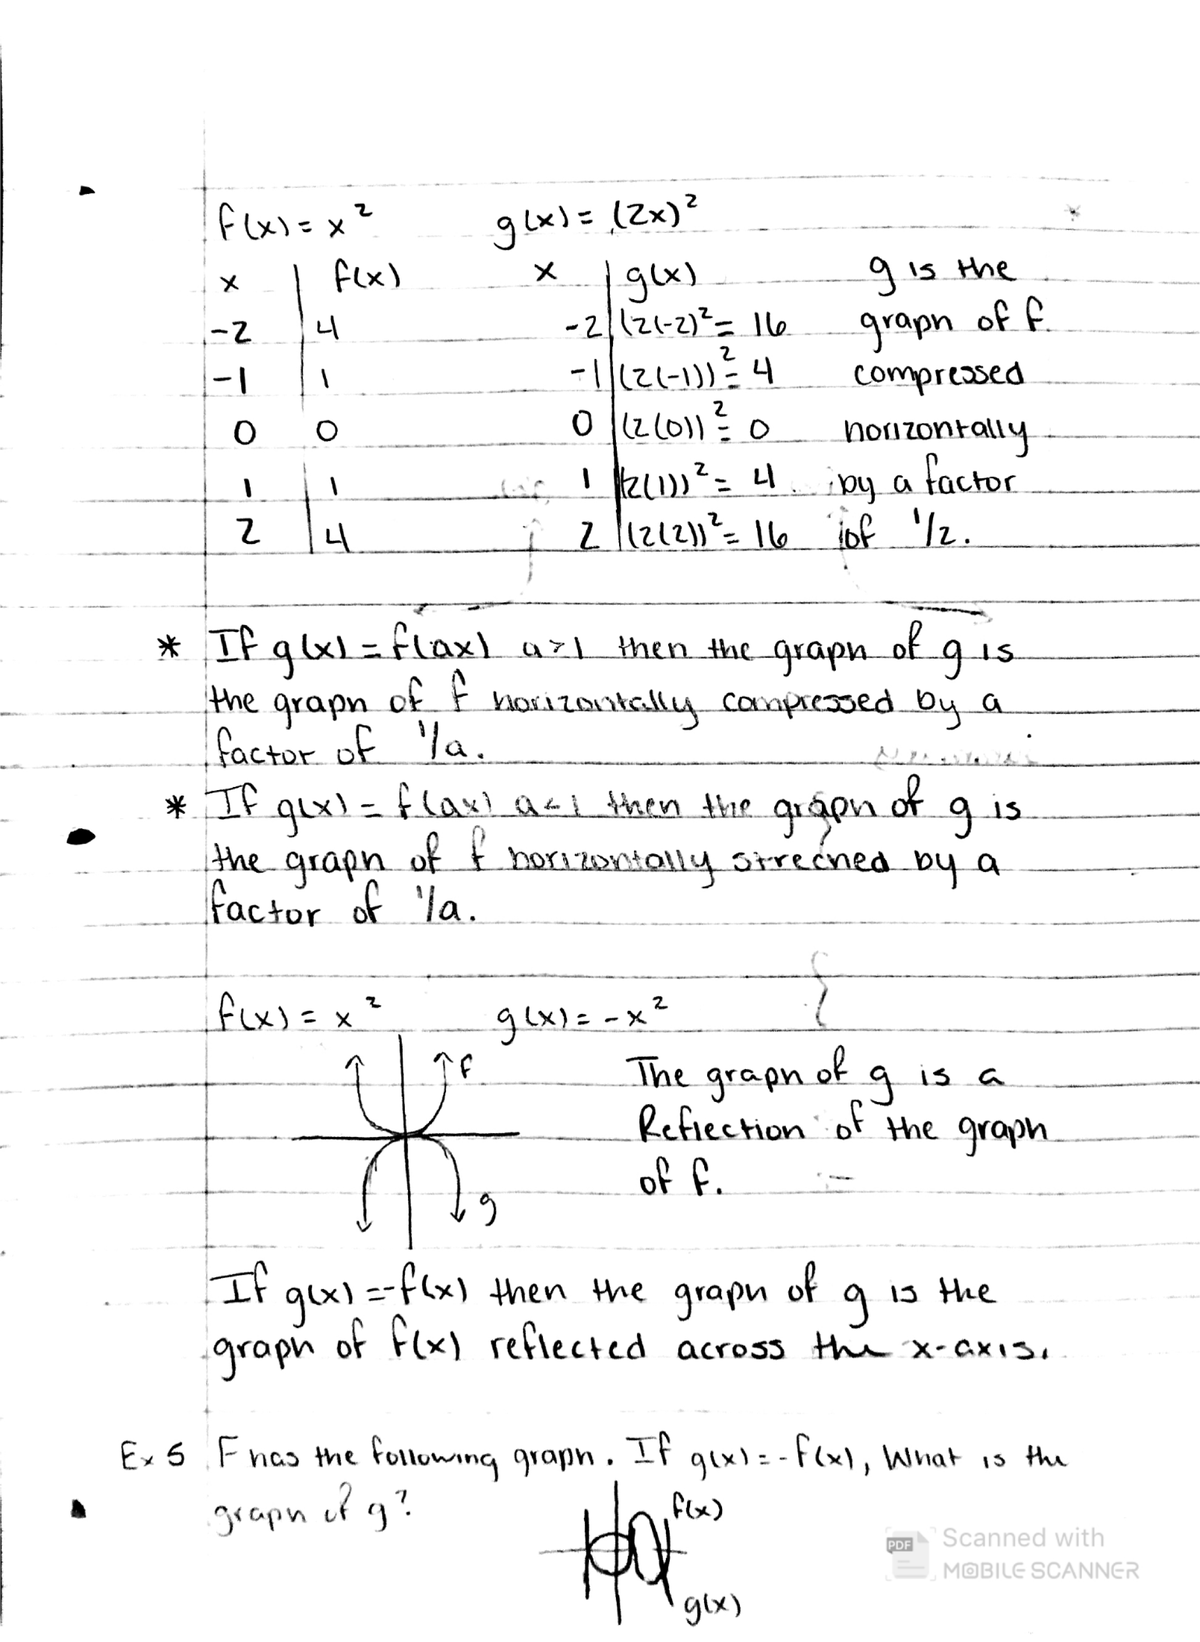 f(x) = x² g(x) = (2x)²
x f(x) x g(x) g is the
-2 4 -2 (2(-2)² = 16 graph of f.
-1 1 -1 (2(-1))² = 4 compressed
0 0 0 (2(0))² = 0 horizontally
1 1 1 (2(1))² = 4 by a factor
2 4 2 (2(2))² = 16 of 1/2.
* If g(x) = f(ax) a>1 then the graph of g is
the graph of f horizontally compressed by a
factor of 1/a.
* If g(x) = f(ax) a<1 then the graph of g is
the graph of f horizontally streched by a
factor of 1/a.
f(x) = x² g(x) = -x²
f
The graph of g is a
Reflection of the graph
of f.
g
If g(x) = -f(x) then the graph of g is the
graph of f(x) reflected across the x-axis.
Ex 5 F has the following graph. If g(x) = -f(x), What is the
graph of g?
f(x)
g(x)
PDF Scanned with
MOBILE SCANNER